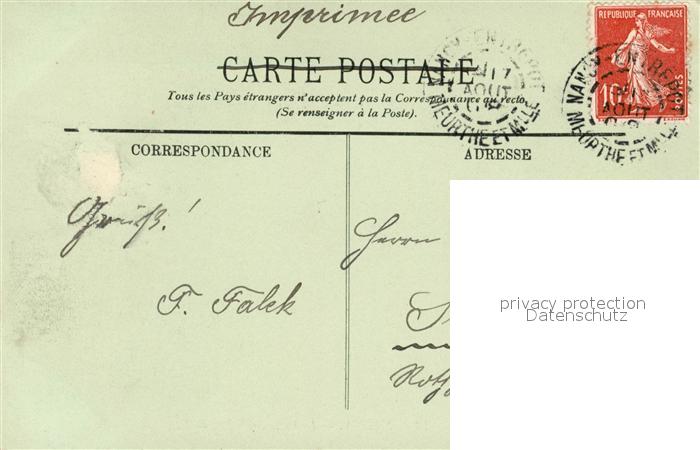 Imprimee
CARTE POSTALE
Tous les Pays étrangers n'acceptent pas la Correspondance au recto.
(Se renseigner à la Poste).
REPUBLIQUE FRANÇAISE
10
POSTES
NANCY ENTREPOT
17
AOUT
MEURTHE ET MLLE
NANCY ENTREPOT
AOUT
MEURTHE ET MLLE
CORRESPONDANCE
ADRESSE
Gruß!
F. Falck
Herrn
privacy protection
Datenschutz